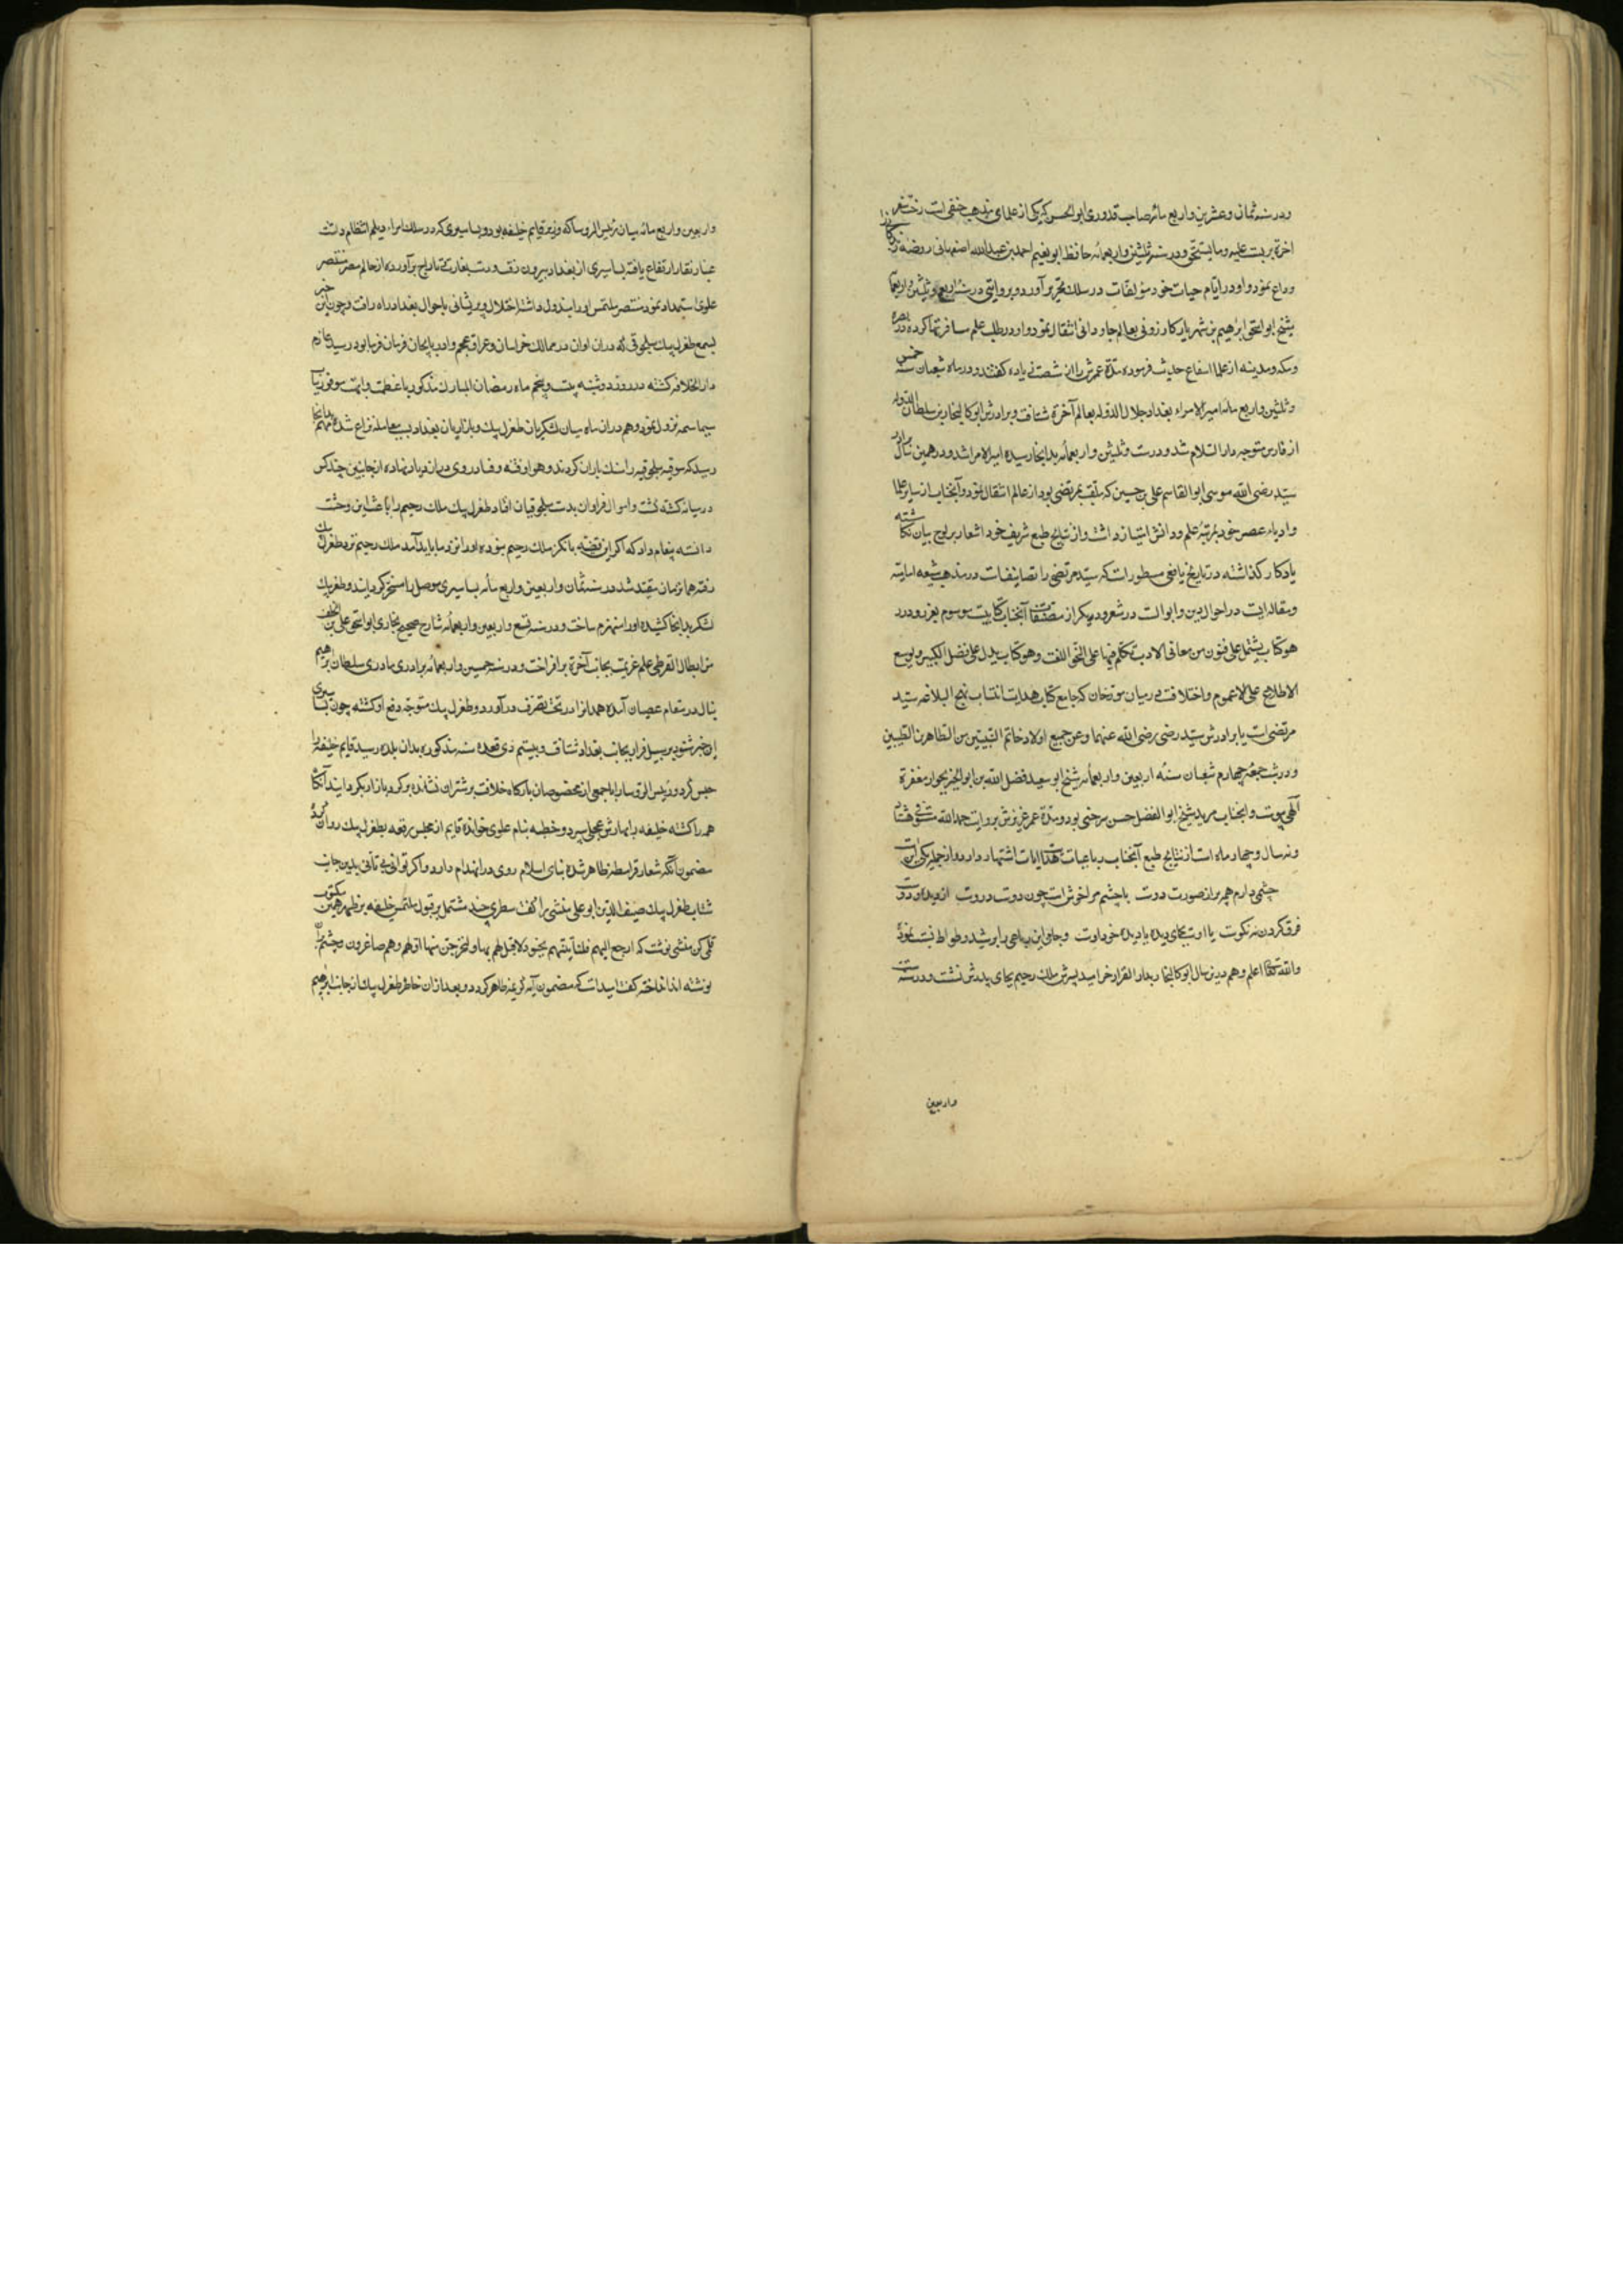 ودر سنه ثمان وعشرین واربع مائه صاحب قدوری ابوالحسن که یکی از علمای مذهب حنفی است رخت سفر
آخرة بربست علیه وما یستحق ودر سنه ثلثین واربعمائه حافظ ابو نعیم احمد بن عبدالله اصفهانی روضه
وداع نمود واو در ایام حیات خود مؤلفات در سلک تحریر آورد وبروایتی در سنه اربع وثلثین واربعمائه
شیخ ابو اسحق ابرهیم بن شهریار کازرونی بعالم جاودانی انتقال نمود واو در طلب علم سافرتها کرده در بصره
ومکه ومدینه از علما استماع حدیث فرموده مدة عمرش را از شصت زیاده گفتند ودر ماه شعبان سنه خمس
وثلثین واربع مائه امیرالامراء بغداد جلال الدوله بعالم آخرة شتافت وبرادرش ابوکالیجار بن سلطان الدوله
از فارس متوجه دارالسلام شد ودر ست وثلثین واربعمائه بدانجا رسیده امیرالامرا شد ودر همین سال برادر
سید رضی الله موسی ابوالقاسم علی بن حسین که ملقب بمرتضی بود از عالم انتقال نمود وآنجناب از سایر علما
وادباء عصر خود بمرتبه علم ودانش امتیاز داشت واز نتایج طبع شریف خود اشعار بر لوح بیان نگاشته
یادکار کذاشته در تاریخ یافعی مسطور است که سید مرتضی را تصانیفات در مذهب شیعه امامیه
ومقالدایست در احوال دین وابوالت در شعر ودیکر از مصنفات آنجناب کتابیست موسوم بغرر ودرر
هو کتاب یشتمل علی فنون من معانی الادب تکلم فیها علی النحو اللغت وهو کتاب یدل علی فضل الکبیر وتوسع
الاطلاع علی الاعموم واختلافست در میان مورخان که جامع کتاب هدایت انتساب نهج البلاغه سید
مرتضی است یا برادرش سید رضی رضی الله عنهما وعن جمیع اولاد خاتم النبیین من الطاهرین الطیبین
ودر شب جمعه چهارم شعبان سنه اربعین واربعمائه شیخ ابو سعید فضل الله بن ابوالخیر بجوار مغفرة
آلهی پیوست وآنجناب مرید شیخ ابوالفضل حسن سرخسی بود ومدة عمر عزیزش بروایت حمدالله مستوفی هشتاد
ونه سال وچهار ماه است از نتایج طبع آنجناب رباعیات هدایت آیات اشتهار دارد واز جمله یکی اینست
چشمی دارم همه پر از صورت دوست با چشم مرا خوش است چون دوست دروست از دیده ودوست
فرق کردن نه نکوست یا اوست بجای دیده یا دیده خود اوست وجواب این رباعی را برشید وطواط نسبت نموده
والله تعالی اعلم وهم درین سال ابوکالیجار بدار القرار خرامید پسرش ملک رحیم بجای پدرش نشست ودر سنه ست
واربعین
واربعین واربع مائه میان رئیس الروسا که وزیر قایم خلیفه بود وبساسیری که در سلک امراء دیلم انتظام داشت
غبار نقار ارتفاع یافته بساسیری از بغداد بیرون رفت ودست بغارت وتاراج برآورده از حاکم مصر مستنصر
علوی استمداد نمود مستنصر ملتمس او را مبذول داشته اختلال وپریشانی باحوال بغداد راه یافت وچون این خبر
بسمع طغرل بیک سلجوقی که دران اوان در ممالک خراسان وعراق عجم واذربایجان فرمان فرما بود رسید عازم
دارالخلافه کشته در روز دوشنبه بیست وپنجم ماه رمضان المبارک مذکور با عظمت وابهت موفور
نزول نمود وهم دران ماه میان لشکریان طغرل بیک وبازاریان بغداد بسبب معامله نزاع شده مهم بدانجا
رسید که سوقیه سلجوقیه را سنک باران کردند وهوا وفتنه وفساد روی در ازدیاد نهاده از جانبین چند کس
درمیانه کشته کشت واموال فراوان بدست سلجوقیان افتاد طغرل بیک ملک رحیم را باعث این وحشت
دانسته پیغام داد که اکر این قضیه بانکیز ملک رحیم نبوده او را نزد ما باید آمد ملک رحیم نزد طغرل بیک
رفته همان زمان مقید شد در سنه ثمان واربعین واربع مائه بساسیری موصل را مسخر کردانید وطغرل بیک
لشکر بدانجا کشیده او را منهزم ساخت ودر سنه تسع واربعین واربعمائه شارح صحیح بخاری ابو اسحق علی بن خلف
بن ابطال القرطبی علم عزیمت بجانب آخرة برافراخت ودر سنه خمسین واربعمائه برادر مادری سلطان ابرهیم
ینال در مقام عصیان آمده همدانرا در تحت تصرف درآورد وطغرل بیک متوجه دفع او کشته چون بساسیری
این خبر شنود بر سبیل فرار بجانب بغداد شتافت وبیستم ذی قعده سنه مذکوره بدان بلده رسید قایم خلیفه را
حبس کرد ورئیس الروسا را با جمعی از مخصوصان بارکاه خلافت بر شتران نشانده بر کرد بازار بکردانید آنکاه
همه را کشته خلیفه را بمهارش عجلی سپرد وخطبه بنام علوی خوانده قایم از محبس رقعه بطغرل بیک روان کرد
مضمون آنکه شعار قرامطه ظاهر شده بنای اسلام روی در انهدام دارد واکر توانی بی تأنی بدین جانب
شتاب طغرل بیک صفی الدین ابو علی منشی را کفت سطری چند مشتمل بر قبول ملتمس خلیفه بر ظهر همین مکتوب
قلمی کن منشی نوشت که ارجع الیهم فلنأتینهم بجنود لا قبل لهم بها ولنخرجنهم منها اذلة وهم صاغرون
نوشته انداخته کفت امید است که مضمون آیه کریمه ظاهر کردد وبعد ازان خاطر طغرل بیک از جانب ابرهیم